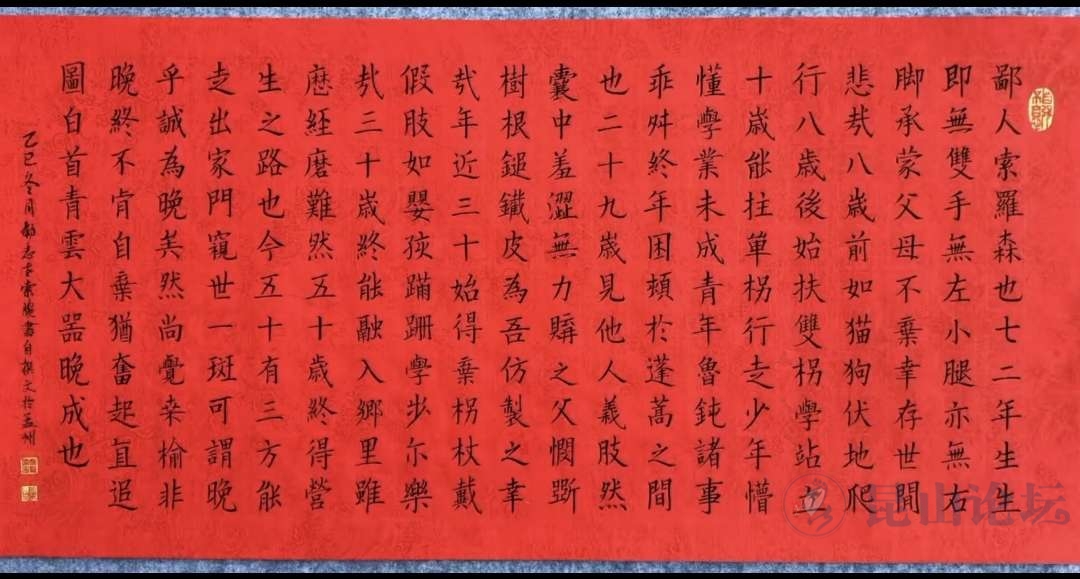 鄙人索羅森也七二年生生
即無雙手無左小腿亦無右
脚承蒙父母不棄幸存世間
悲哉八歲前如猫狗伏地爬
行八歲後始扶雙拐學站立
十歲能拄單拐行走少年懵
懂學業未成青年魯鈍諸事
乖舛終年困頓於蓬蒿之間
也二十九歲見他人義肢然
囊中羞澀無力購之父憫斲
樹根鎚鐵皮為吾仿製之幸
哉年近三十始得棄拐杖戴
假肢如嬰孩蹣跚學步尒樂
哉三十歲終能融入鄉里雖
歷經磨難然五十歲終得營
生之路也今五十有三方能
走出家門窺世一斑可謂晚
乎誠為晚矣然尚覺桑榆非
晚終不肯自棄猶奮起直追
圖白首青雲大器晚成也
乙巳冬月志書索腕書自撰文於孟州
昆山论坛